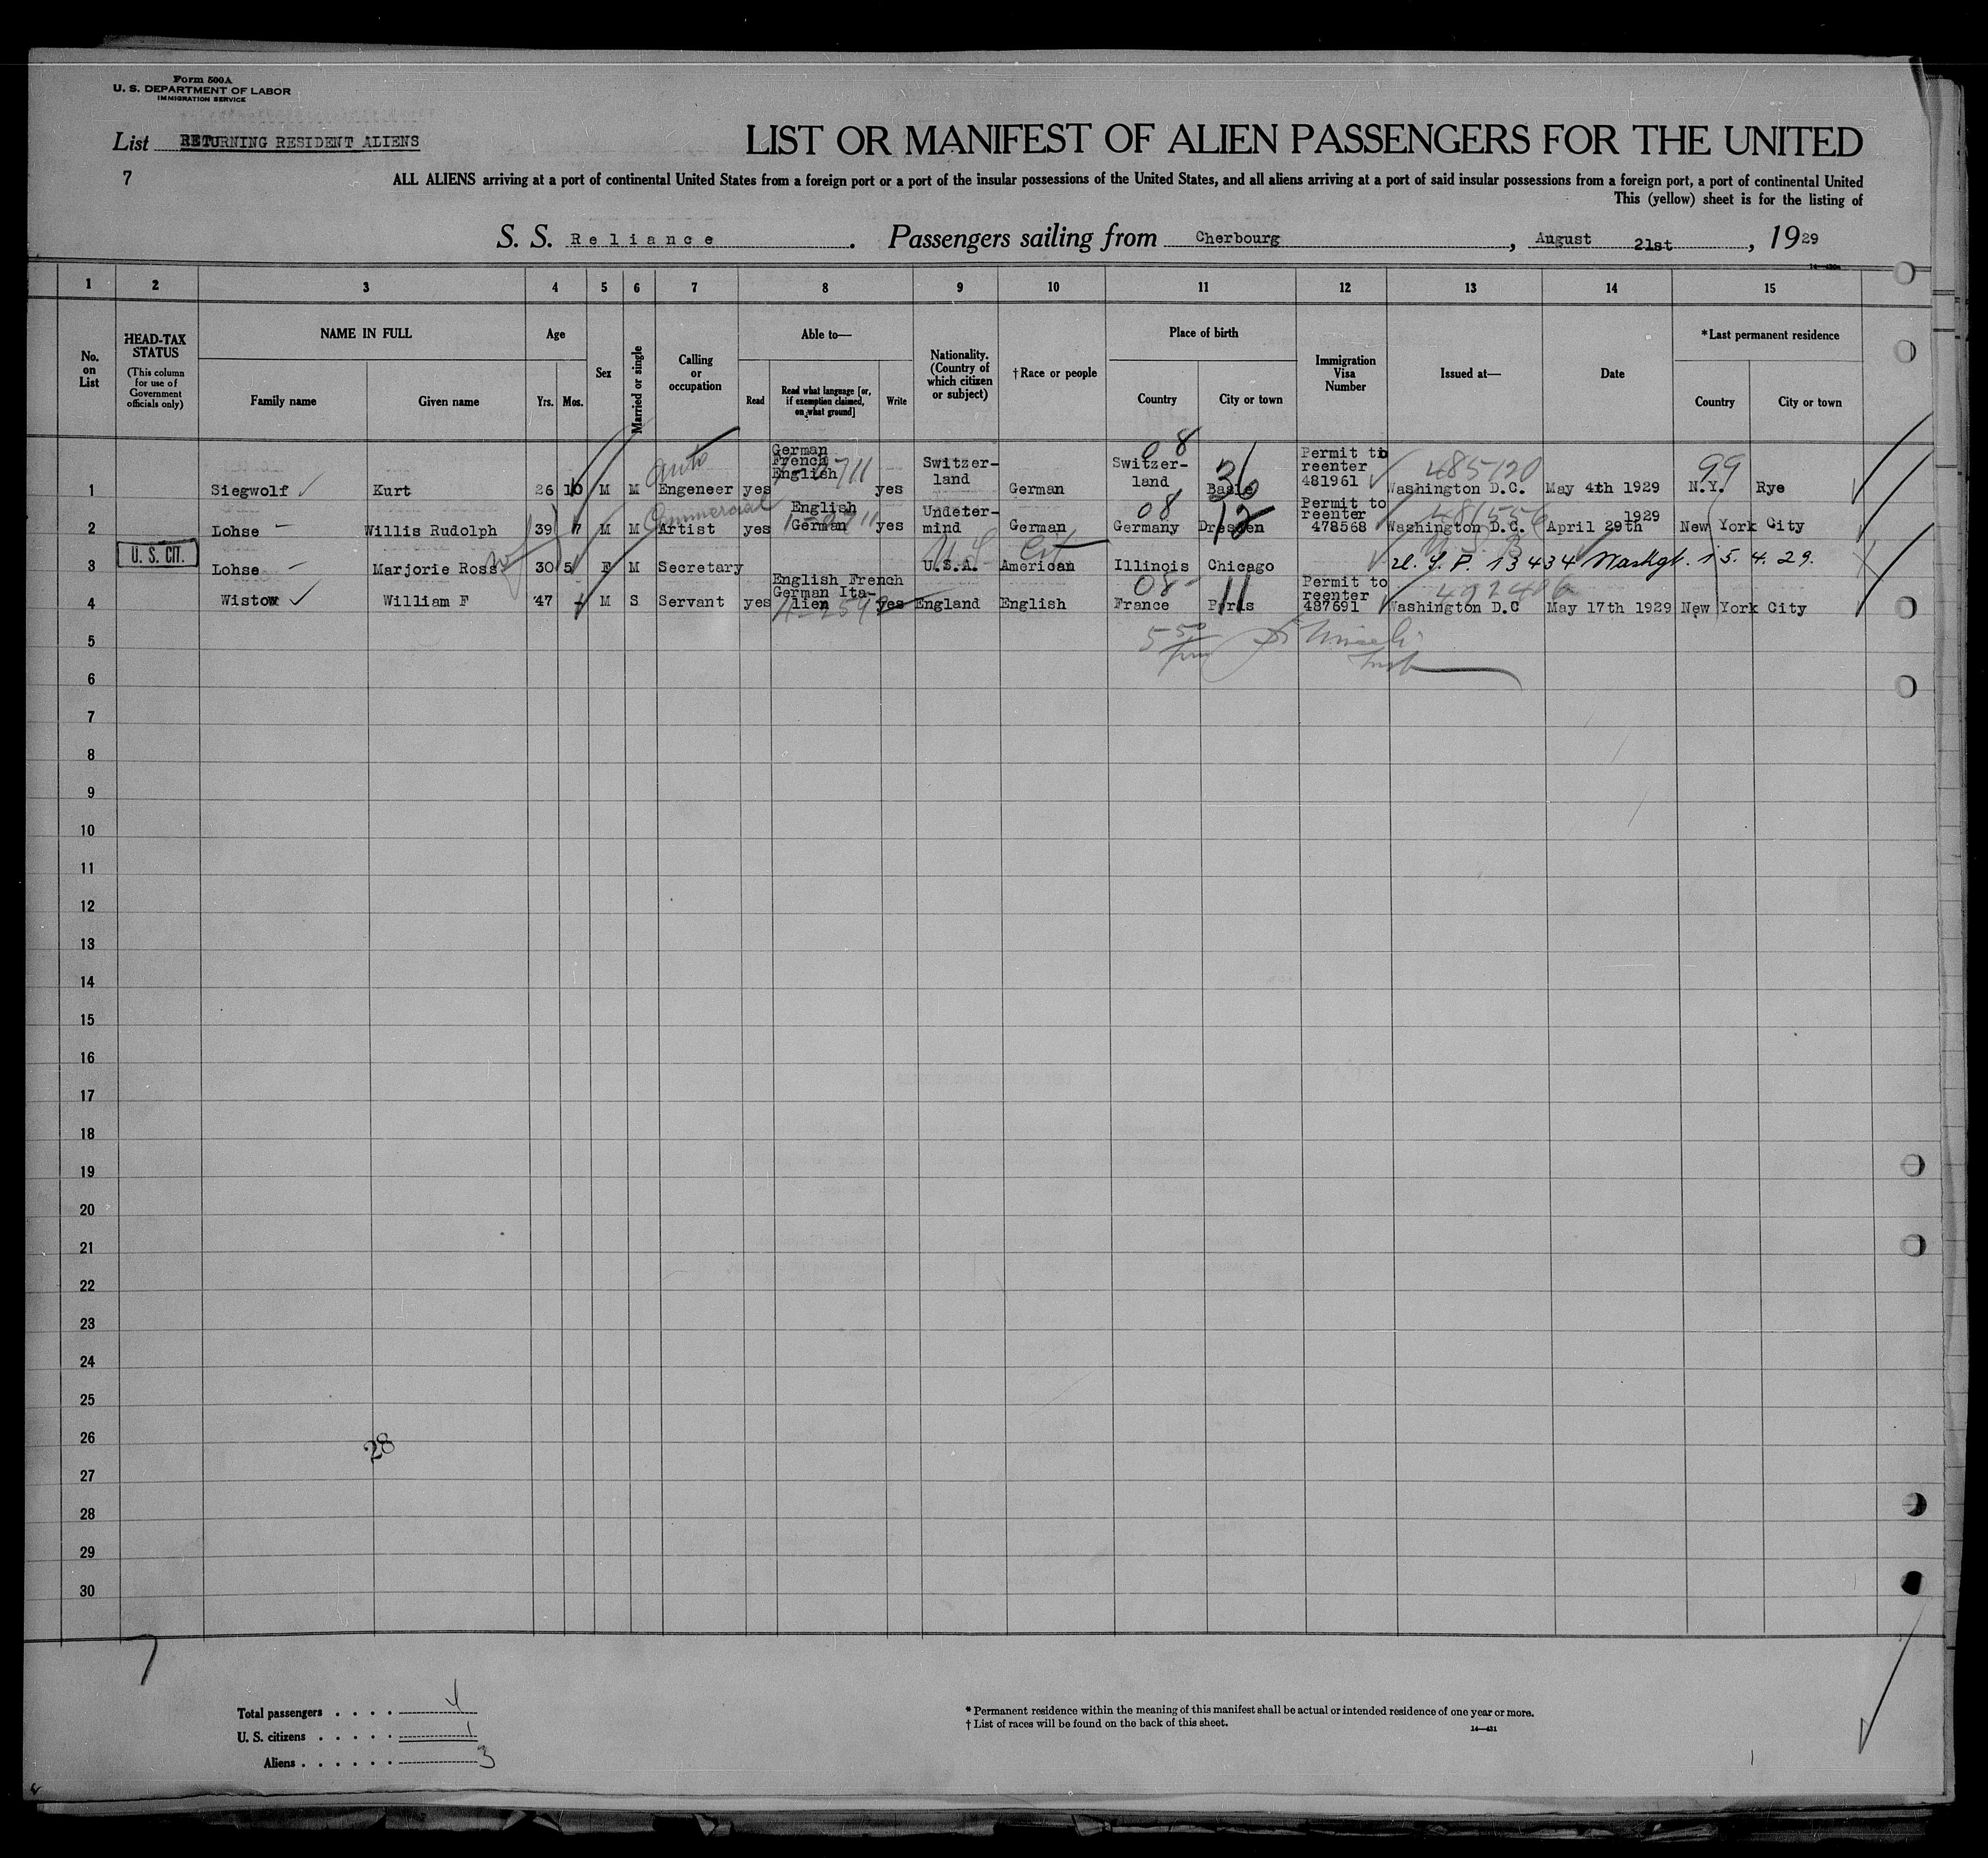 Form 500A
U. S. DEPARTMENT OF LABOR
IMMIGRATION SERVICE
List RETURNING RESIDENT ALIENS
7
LIST OR MANIFEST OF ALIEN PASSENGERS FOR THE UNITED
ALL ALIENS arriving at a port of continental United States from a foreign port or a port of the insular possessions of the United States, and all aliens arriving at a port of said insular possessions from a foreign port, a port of continental United
This (yellow) sheet is for the listing of
S. S. Reliance. Passengers sailing from Cherbourg, August 21st, 1929
1 2 3 4 5 6 7 8 9 10 11 12 13 14 15
No. on List
HEAD-TAX STATUS
(This column for use of Government officials only)
NAME IN FULL
Family name Given name
Age
Yrs. Mos.
Sex
Married or single
Calling or occupation
Able to—
Read
Read what language [or, if exemption claimed, on what ground]
Write
Nationality. (Country of which citizen or subject)
†Race or people
Place of birth
Country City or town
Immigration Visa Number
Issued at—
Date
*Last permanent residence
Country City or town
1 Siegwolf Kurt 26 10 M M Auto Engeneer yes German French English yes Switzer-land German Switzer-land Basle Permit to reenter 481961 Washington D.C. May 4th 1929 N.Y. Rye
08 36 485120 99
2 Lohse Willis Rudolph 39 7 M M Commercial Artist yes English German yes Undeter-mind German Germany Dresden Permit to reenter 478568 Washington D.C. April 29th 1929 New York City
08 12
U. S. CIT.
3 Lohse Marjorie Ross 30 5 F M Secretary U.S.A. American Illinois Chicago U. S. P. 13434 Washgt. 15. 4. 29.
U.S. Cit
4 Wistow William F 47 - M S Servant yes English French German Ita-lien yes England English France Paris Permit to reenter 487691 Washington D.C May 17th 1929 New York City
08 11
5
6
7
8
9
10
11
12
13
14
15
16
17
18
19
20
21
22
23
24
25
26
28
27
28
29
30
7
Total passengers . . . . 4
U. S. citizens . . . . . 1
Aliens . . . . . . 3
* Permanent residence within the meaning of this manifest shall be actual or intended residence of one year or more.
† List of races will be found on the back of this sheet.
14—431